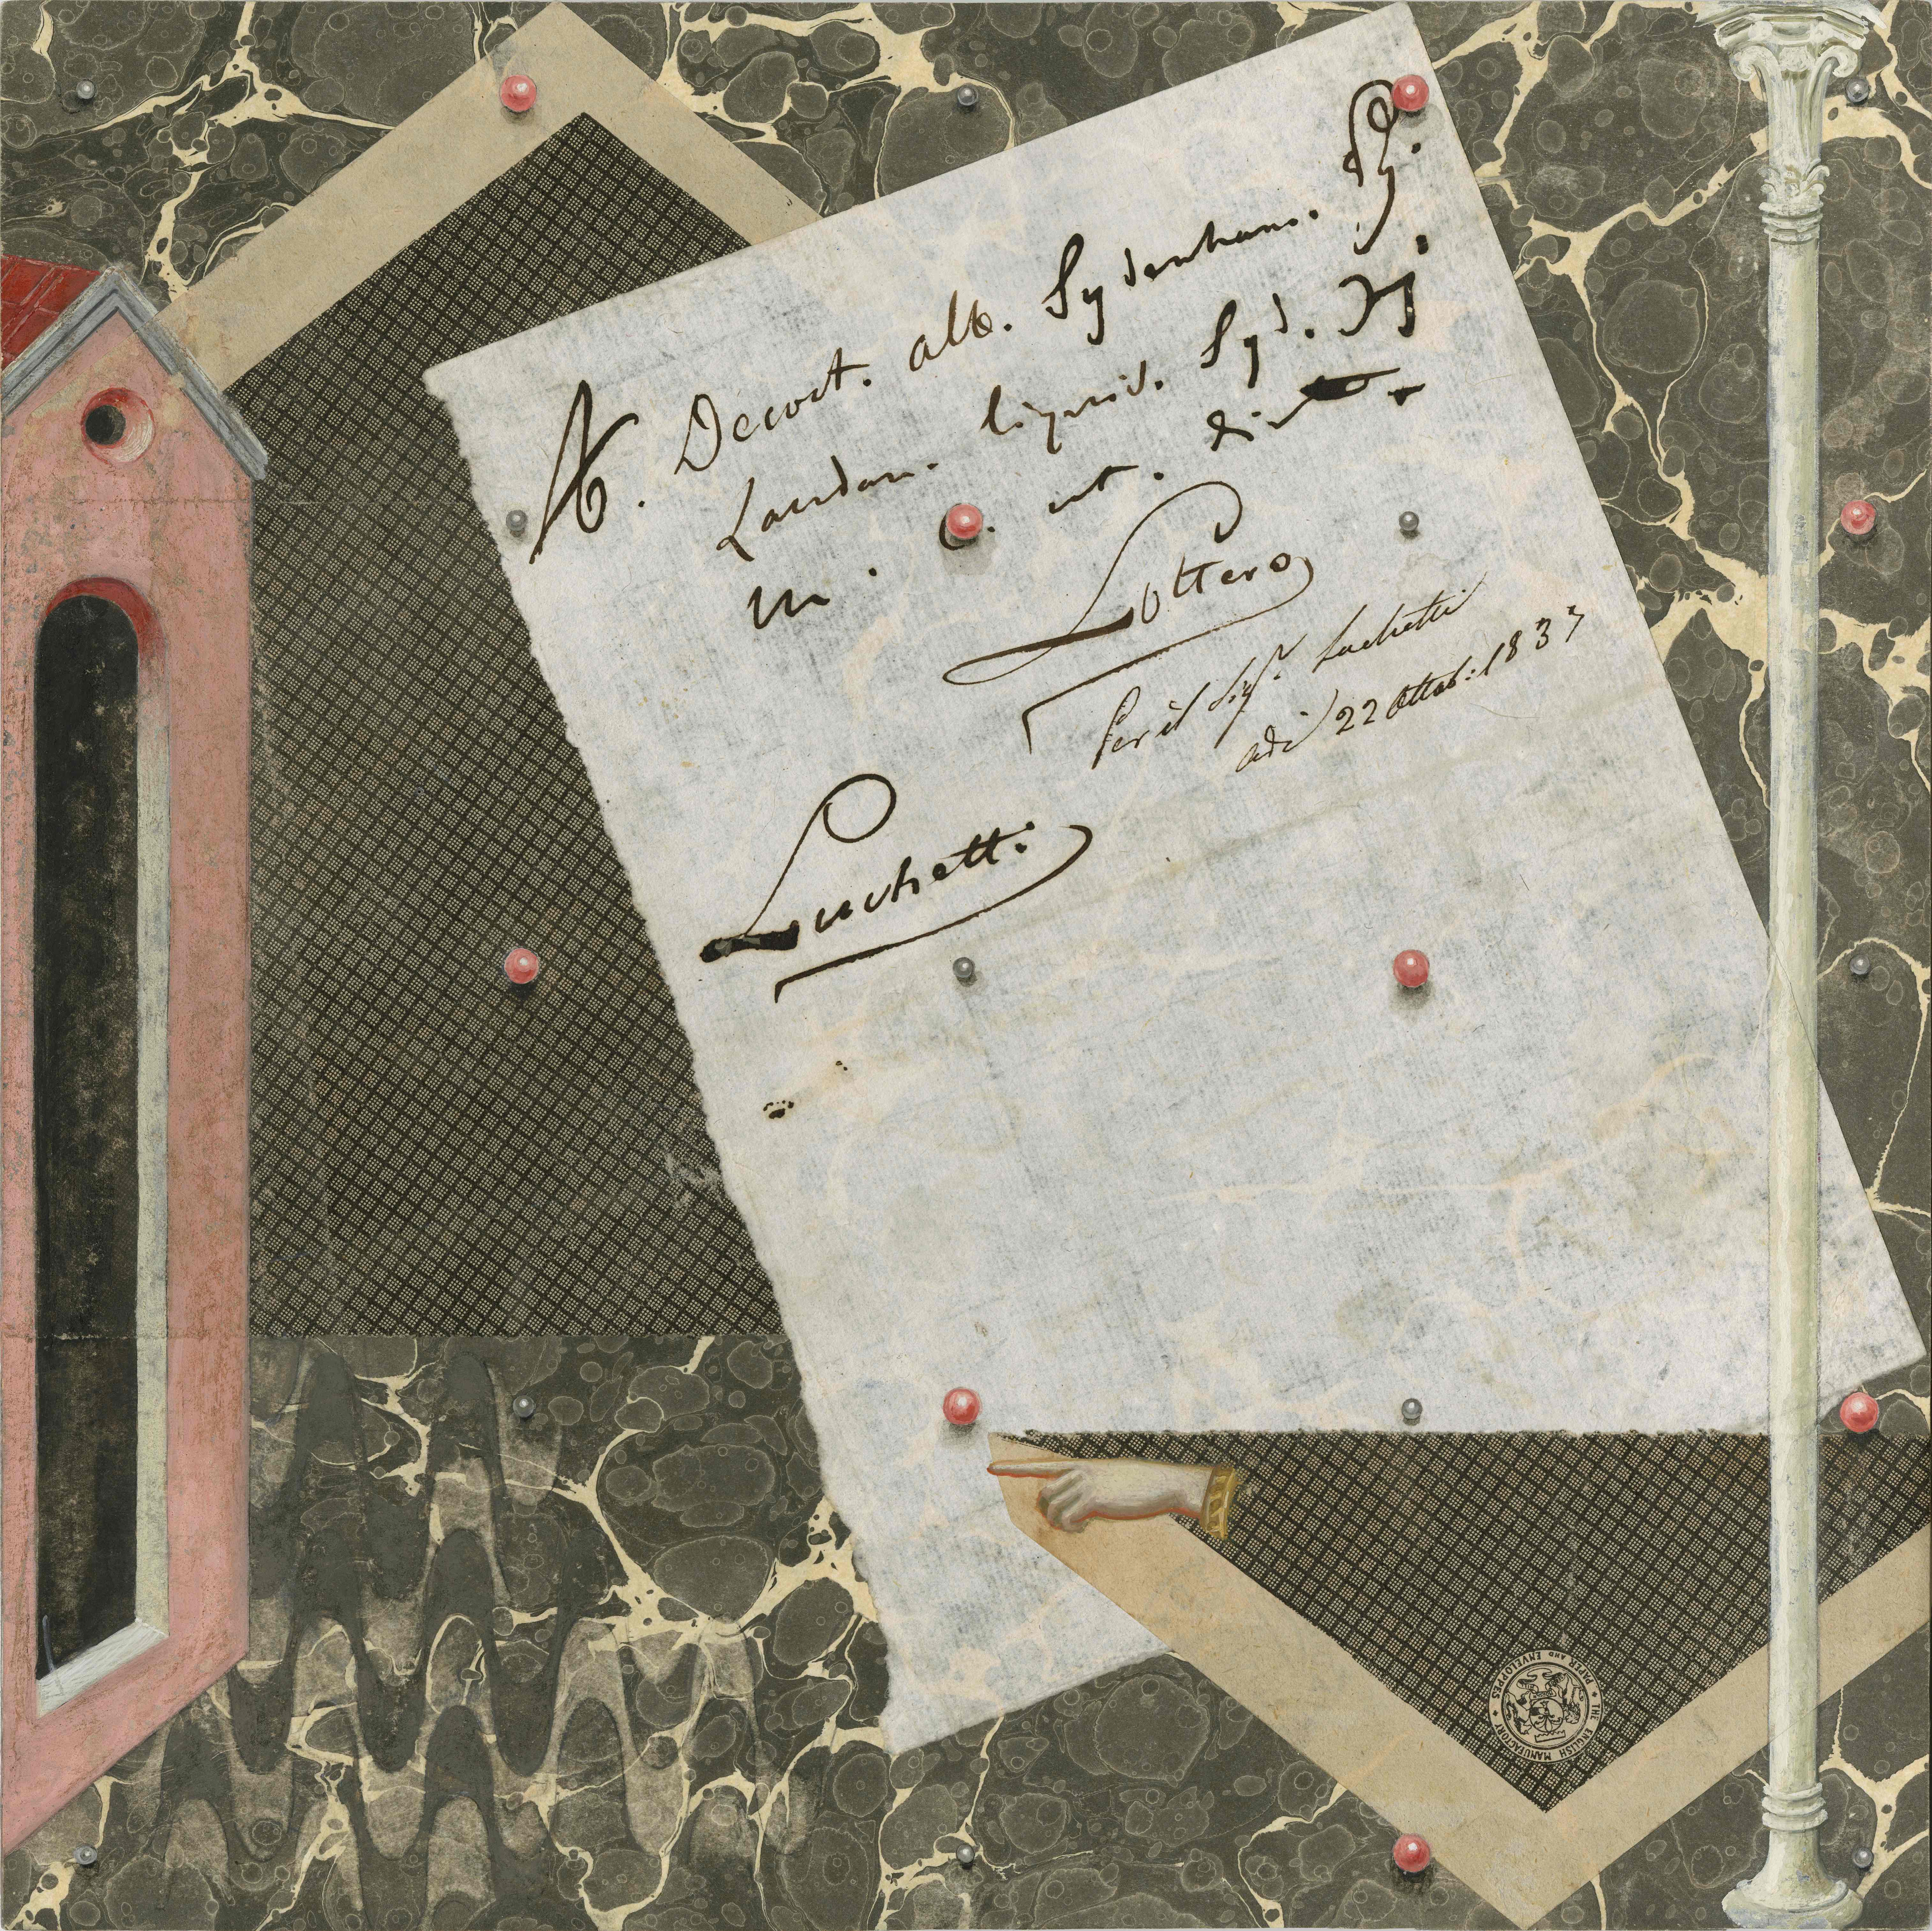 Decoct. alb. Sydenham.
Laudan. liquid. Syd.
m. ut.
Lottero
Per il Sigr Luchetti
adi 22 Ottob: 1837
Luchetti
✦ THE ENGLISH MANUFACTORY ✦ PAPER AND ENVELOPPES